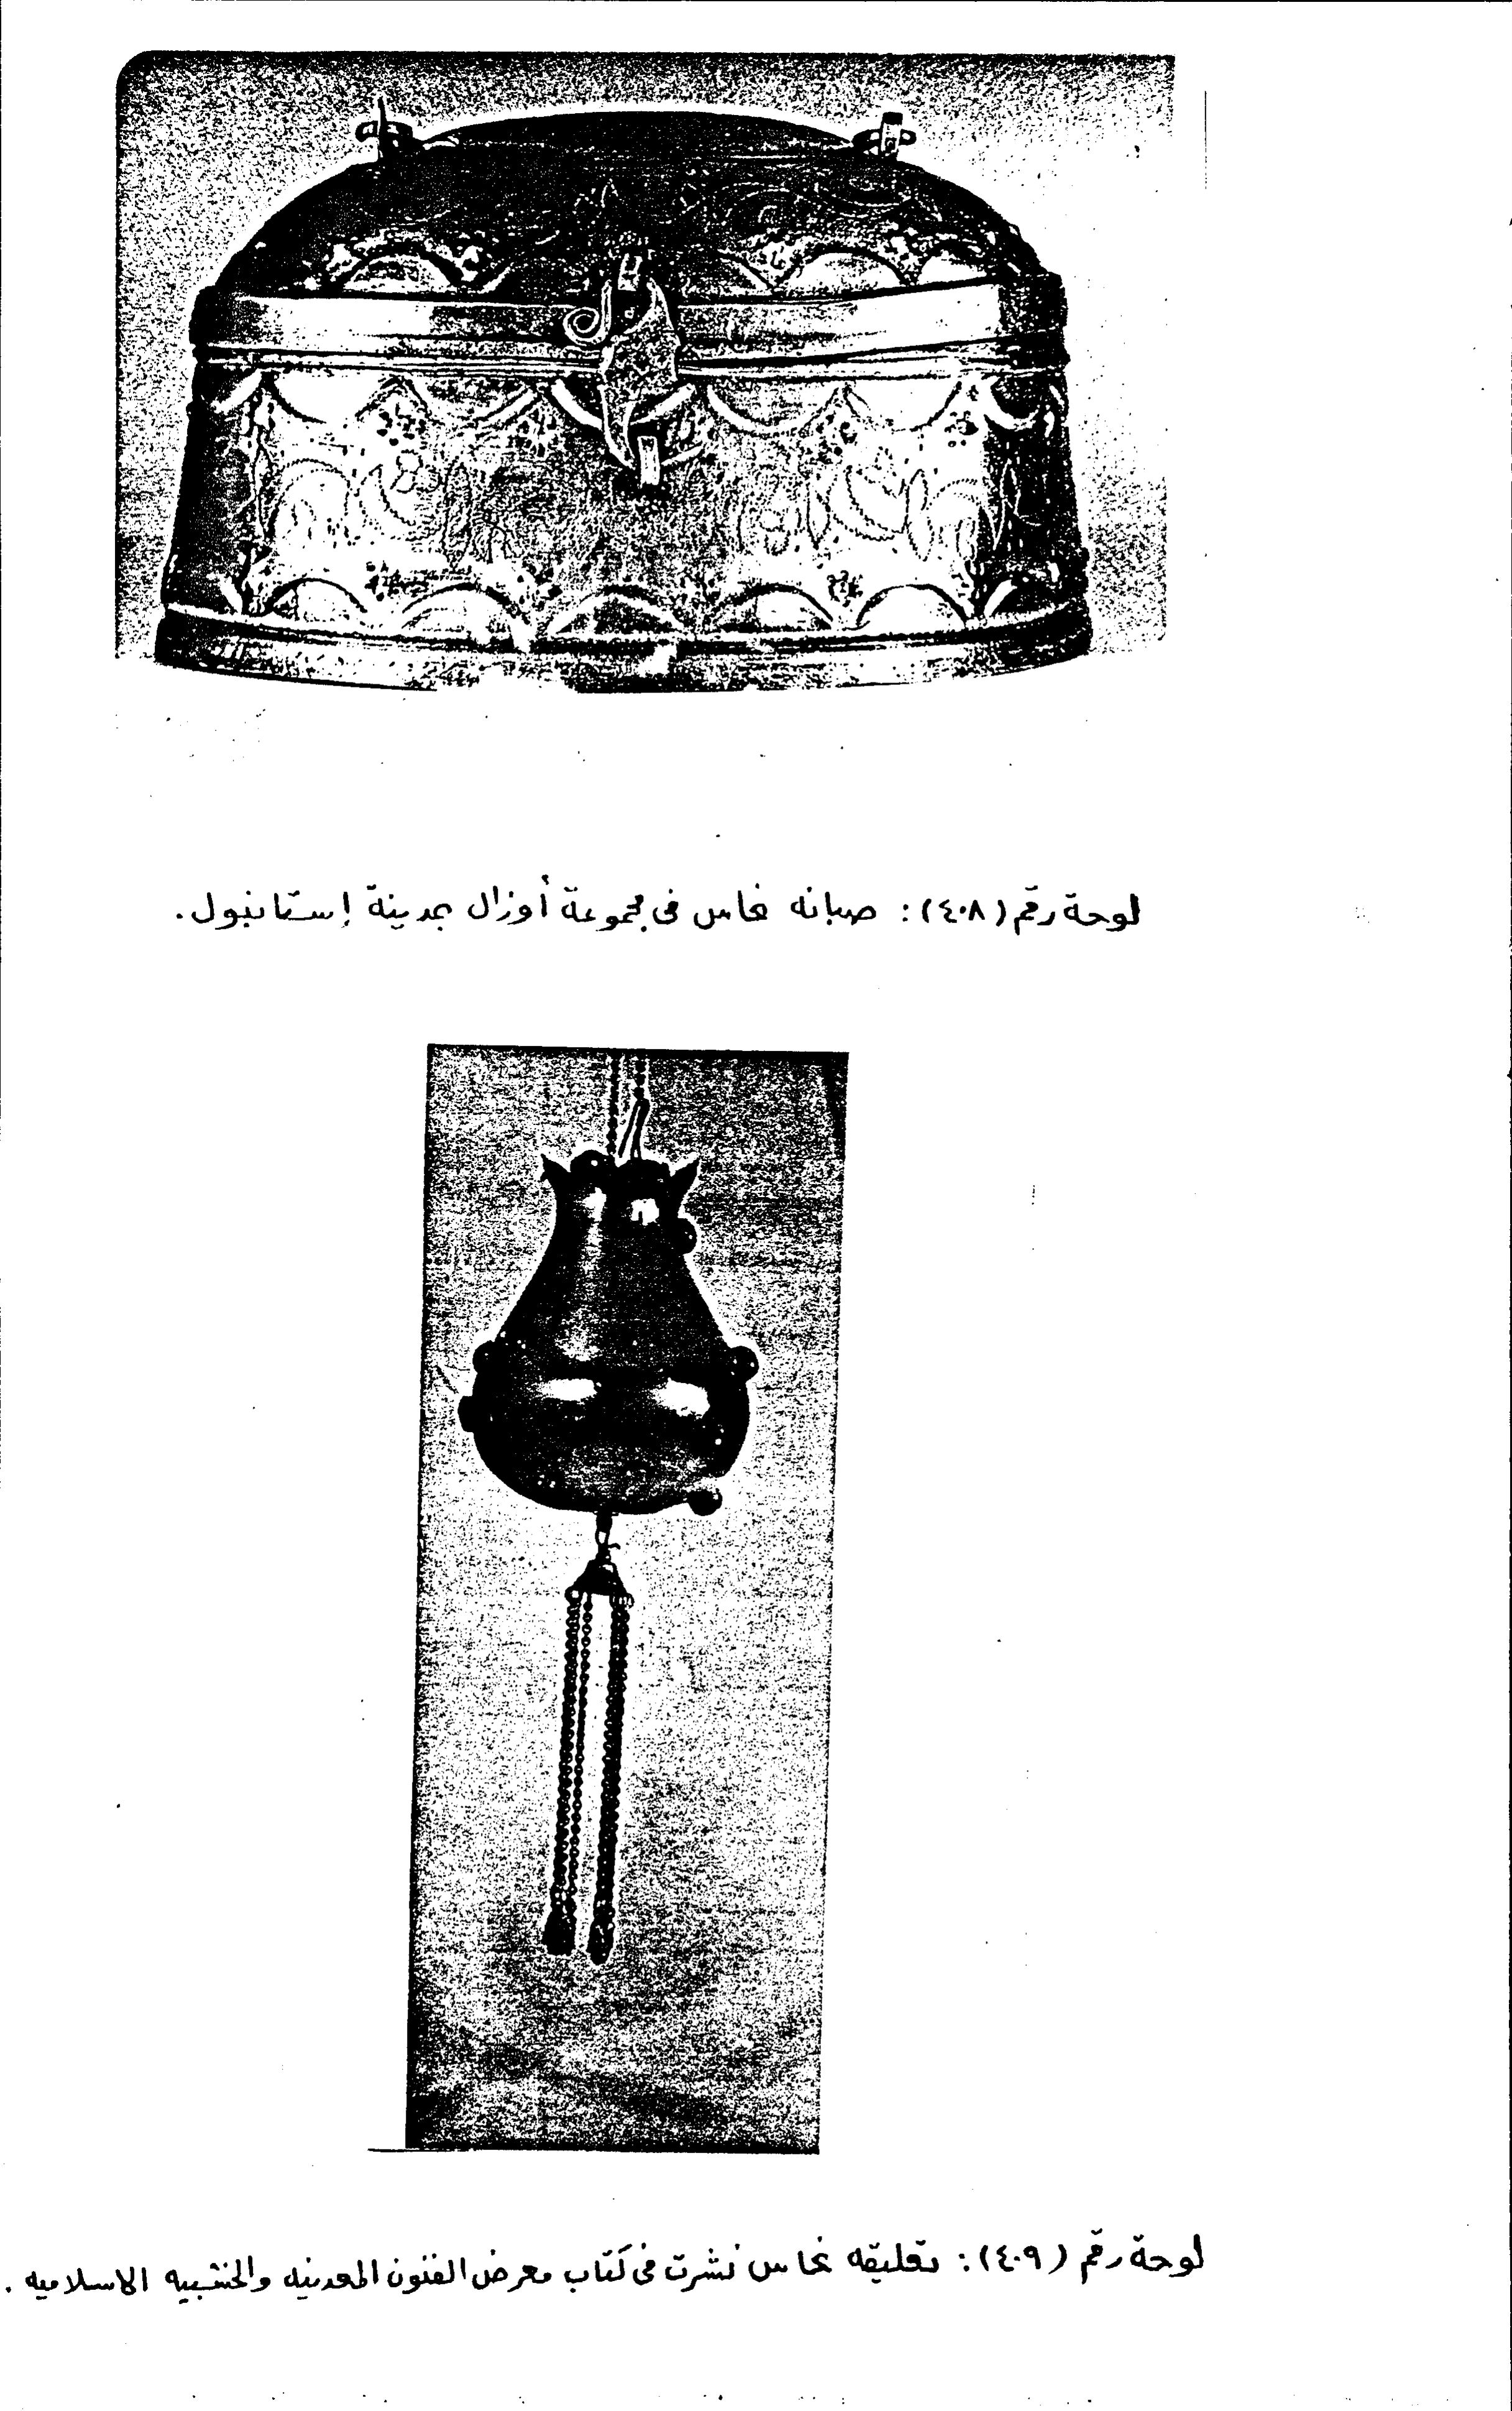 لوحة رقم (٤٠٨): صبانه نحاس فى مجموعة أوزال بمدينة إستانبول.
لوحة رقم (٤٠٩): تعليقه نحاس نشرت فى كتاب معرض الفنون المعدنيه والخشبيه الاسلاميه.